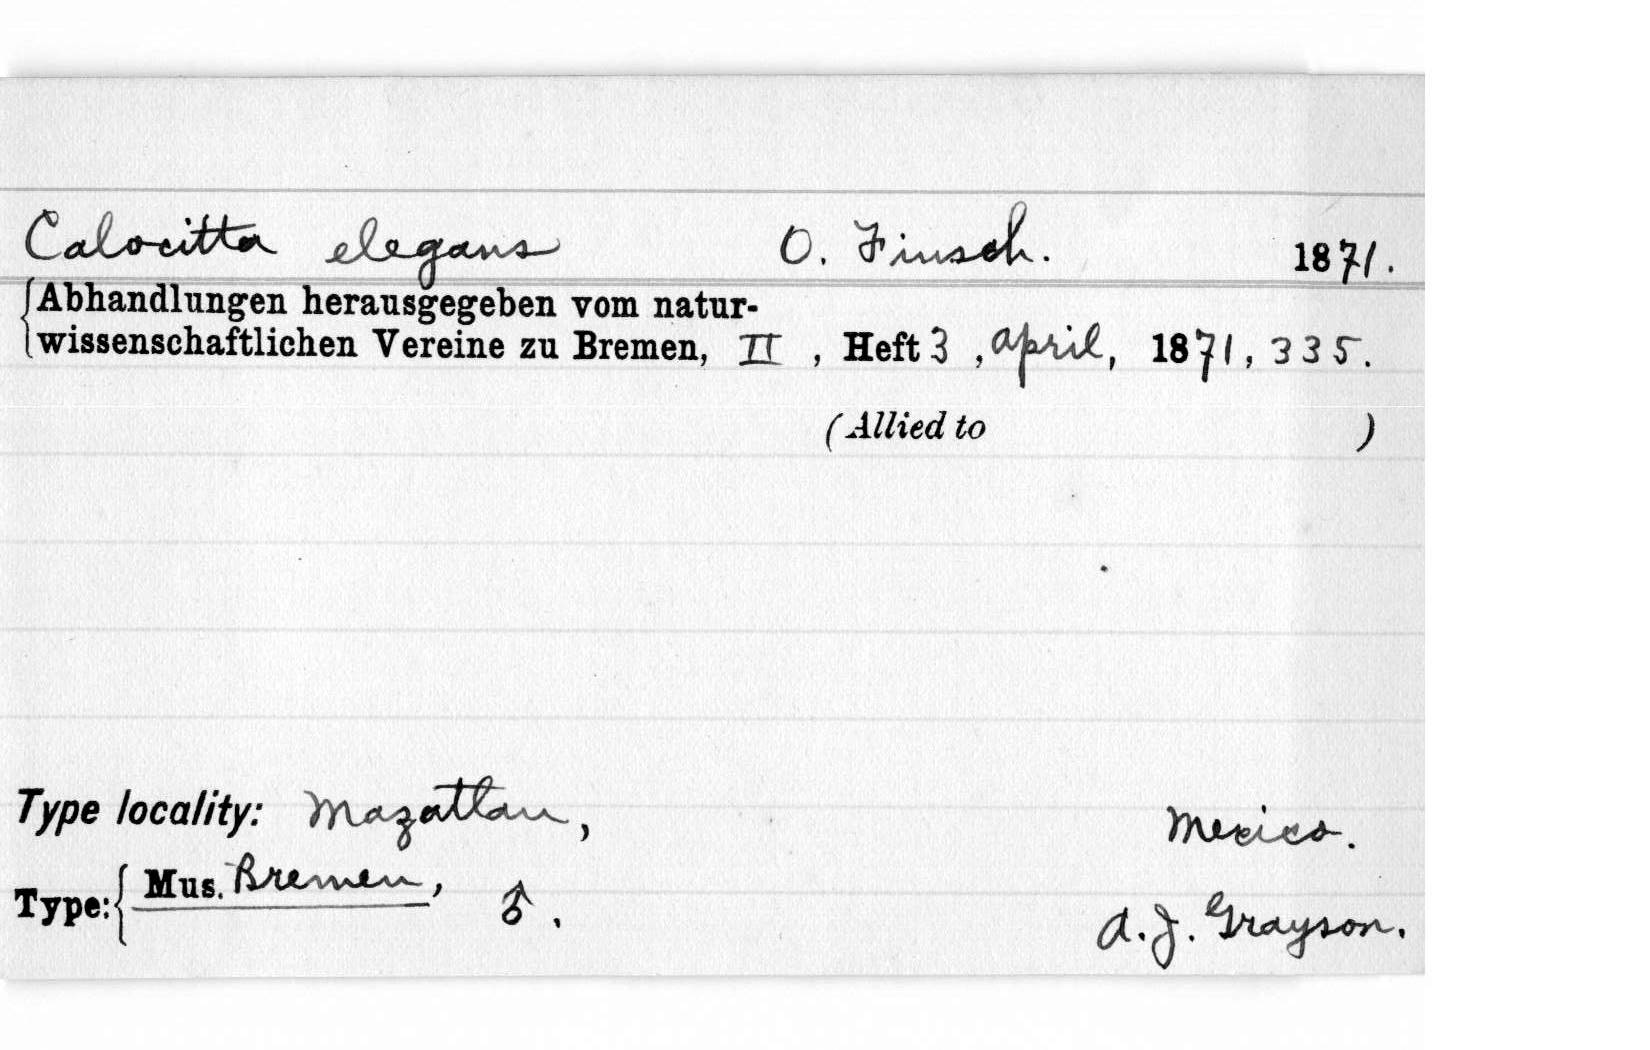 Calocitta elegans O. Finsch. 1871.
Abhandlungen herausgegeben vom natur-
wissenschaftlichen Vereine zu Bremen, II, Heft 3, April, 1871, 335.
(Allied to )
Type locality: Mazatlan, Mexico.
Type: Mus. Bremen, ♂. A. J. Grayson.